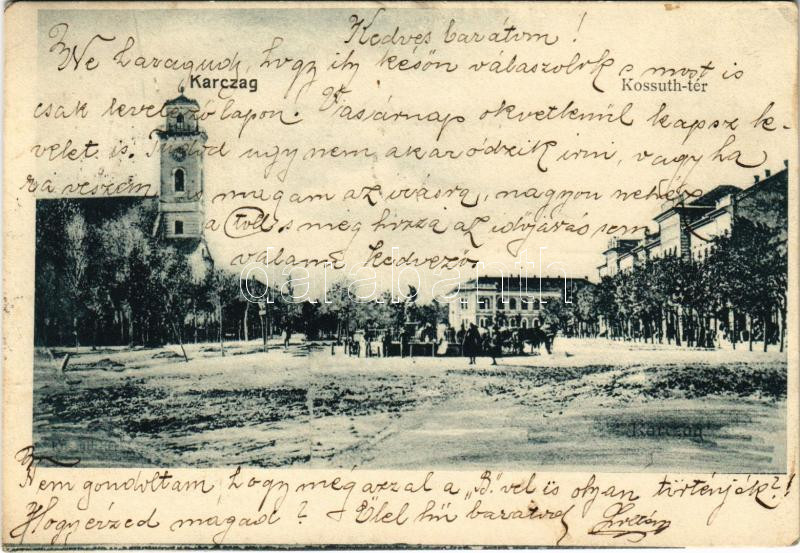 Kedves barátom!
Ne haragudj, hogy ily későn válaszolok s most is
Karczag
Kossuth-tér
csak levelező lapon. Vasárnap okvetlenül kapsz le-
velet is. Tudod ugy nem akaródzik irni, vagy ha
rá veszem is magam az irásra, nagyon nehéz
a toll s még hozzá az időjárás sem
valami kedvező.
darabanth
Karczag
Nem gondoltam hogy még azzal a „B."vel is olyan történjék?!
Hogy érzed magad? Ölel hű barátod Zoltán